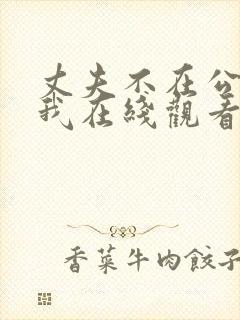 丈夫不在公
我在綫觀看
香菜牛肉餃子